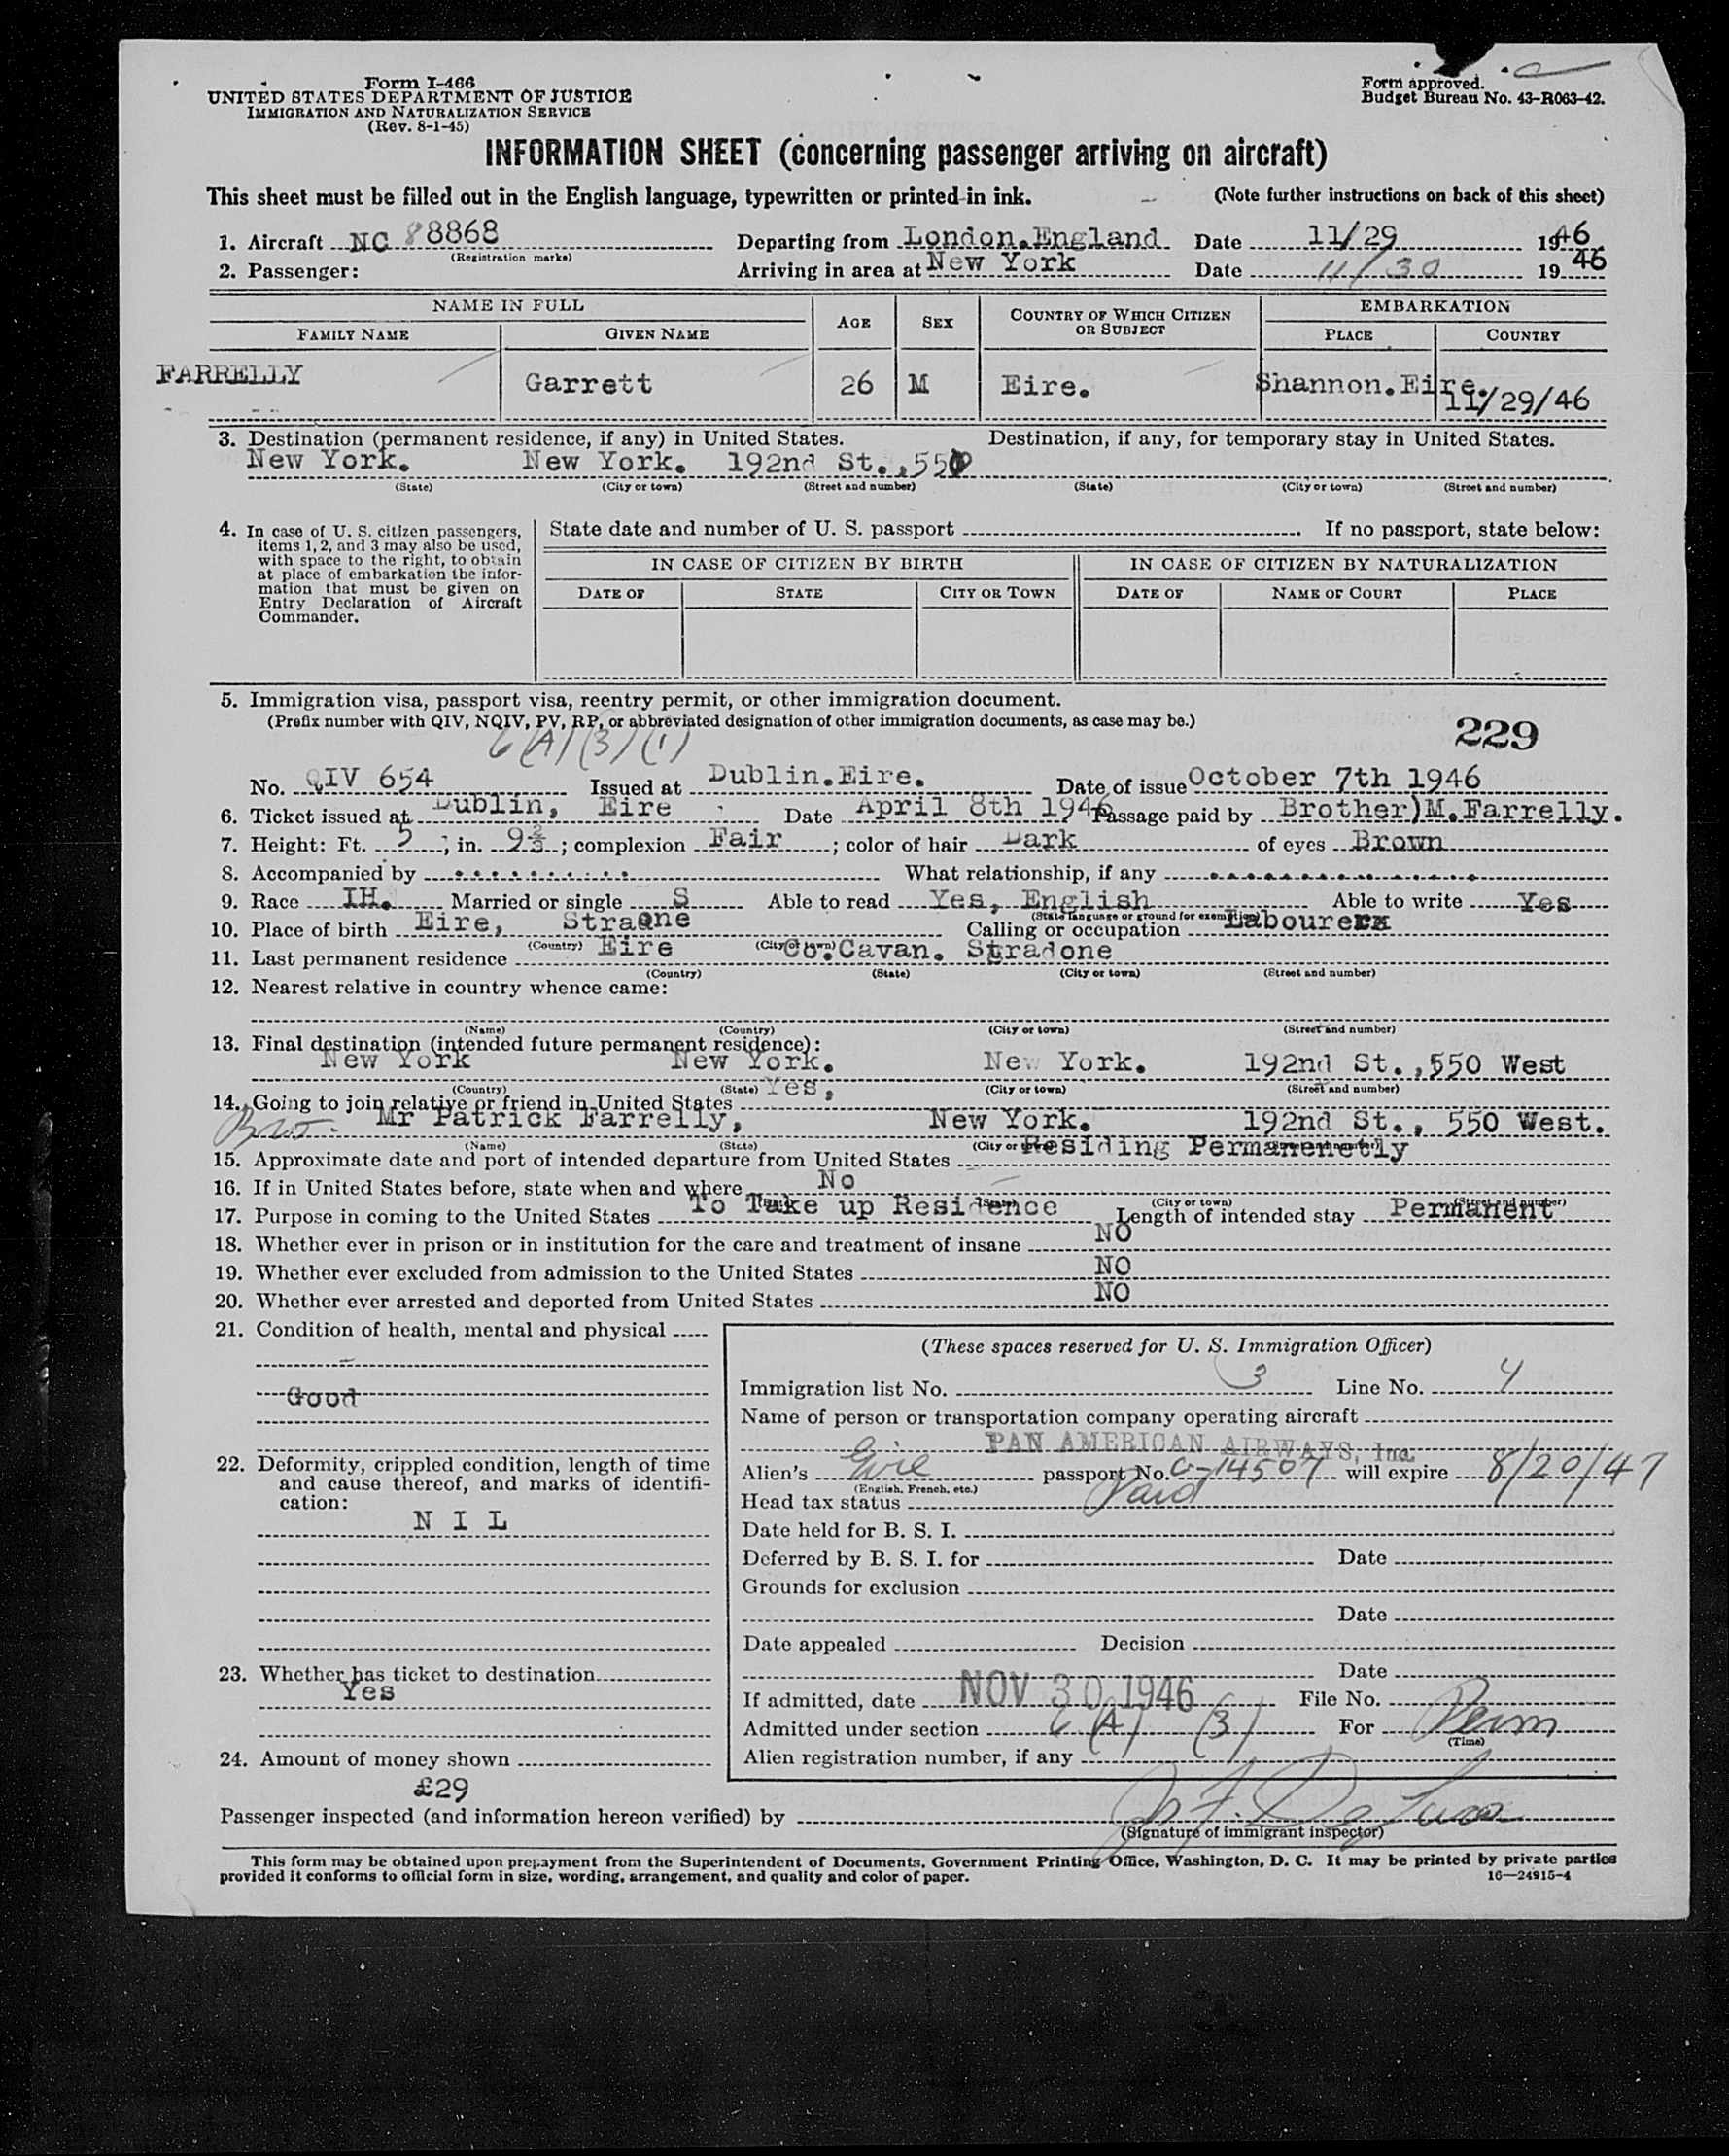 Form I-466
UNITED STATES DEPARTMENT OF JUSTICE
IMMIGRATION AND NATURALIZATION SERVICE
(Rev. 8-1-45)
Form approved.
Budget Bureau No. 43-R063-42.
INFORMATION SHEET (concerning passenger arriving on aircraft)
This sheet must be filled out in the English language, typewritten or printed in ink. (Note further instructions on back of this sheet)
1. Aircraft NC 88868 Departing from London.England Date 11/29 1946
(Registration marks)
2. Passenger: Arriving in area at New York Date 11/30 19 46
NAME IN FULL AGE SEX COUNTRY OF WHICH CITIZEN OR SUBJECT EMBARKATION
FAMILY NAME GIVEN NAME PLACE COUNTRY
FARRELLY Garrett 26 M Eire. Shannon.Eire.
11/29/46
3. Destination (permanent residence, if any) in United States. Destination, if any, for temporary stay in United States.
New York. New York. 192nd St.,550
(State) (City or town) (Street and number) (State) (City or town) (Street and number)
4. In case of U. S. citizen passengers, items 1, 2, and 3 may also be used, with space to the right, to obtain at place of embarkation the information that must be given on Entry Declaration of Aircraft Commander.
State date and number of U. S. passport . If no passport, state below:
IN CASE OF CITIZEN BY BIRTH IN CASE OF CITIZEN BY NATURALIZATION
DATE OF STATE CITY OR TOWN DATE OF NAME OF COURT PLACE
5. Immigration visa, passport visa, reentry permit, or other immigration document.
(Prefix number with QIV, NQIV, PV, RP, or abbreviated designation of other immigration documents, as case may be.)
229
6(A)(3)(1)
No. QIV 654 Issued at Dublin.Eire. Date of issue October 7th 1946
6. Ticket issued at Dublin, Eire Date April 8th 1946 Passage paid by Brother)M.Farrelly.
7. Height: Ft. 5 ; in. 9 2/3 ; complexion Fair ; color of hair Dark of eyes Brown
8. Accompanied by .......... What relationship, if any
9. Race IH. Married or single S Able to read Yes, English Able to write Yes
(State language or ground for exemption)
10. Place of birth Eire, Straone Calling or occupation Labourerx
(Country) (City or town)
11. Last permanent residence Eire Co.Cavan. Stradone
(Country) (State) (City or town) (Street and number)
12. Nearest relative in country whence came:
(Name) (Country) (City or town) (Street and number)
13. Final destination (intended future permanent residence):
New York New York. New York. 192nd St.,550 West
(Country) (State) (City or town) (Street and number)
14. Going to join relative or friend in United States Yes,
Bro. Mr Patrick Farrelly, New York. 192nd St., 550 West.
(Name) (State) (City or town) (Street and number)
15. Approximate date and port of intended departure from United States Residing Permanenetly
16. If in United States before, state when and where No
(State) (City or town) (Street and number)
17. Purpose in coming to the United States To Take up Residence Length of intended stay Permanent
18. Whether ever in prison or in institution for the care and treatment of insane NO
19. Whether ever excluded from admission to the United States NO
20. Whether ever arrested and deported from United States NO
21. Condition of health, mental and physical
Good
22. Deformity, crippled condition, length of time and cause thereof, and marks of identification:
N I L
23. Whether has ticket to destination
Yes
24. Amount of money shown
£29
(These spaces reserved for U. S. Immigration Officer)
Immigration list No. 3 Line No. 4
Name of person or transportation company operating aircraft
PAN AMERICAN AIRWAYS, Inc.
Alien's Eire passport No. C-14507 will expire 8/20/47
(English, French, etc.)
Head tax status Paid
Date held for B. S. I.
Deferred by B. S. I. for Date
Grounds for exclusion
Date
Date appealed Decision
Date
If admitted, date NOV 30 1946 File No.
Admitted under section 6(A)(3) For Perm
(Time)
Alien registration number, if any
Passenger inspected (and information hereon verified) by
(Signature of immigrant inspector)
This form may be obtained upon prepayment from the Superintendent of Documents, Government Printing Office, Washington, D. C. It may be printed by private parties
provided it conforms to official form in size, wording, arrangement, and quality and color of paper. 16—24915-4